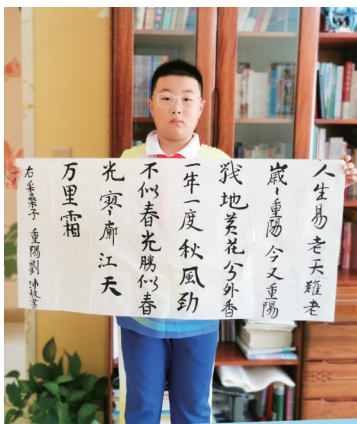 人生易老天難老
歲〻重陽今又重陽
戰地黃花分外香
一年一度秋風勁
不似春光勝似春
光寥廓江天
万里霜
右采桑子 重陽劉沛